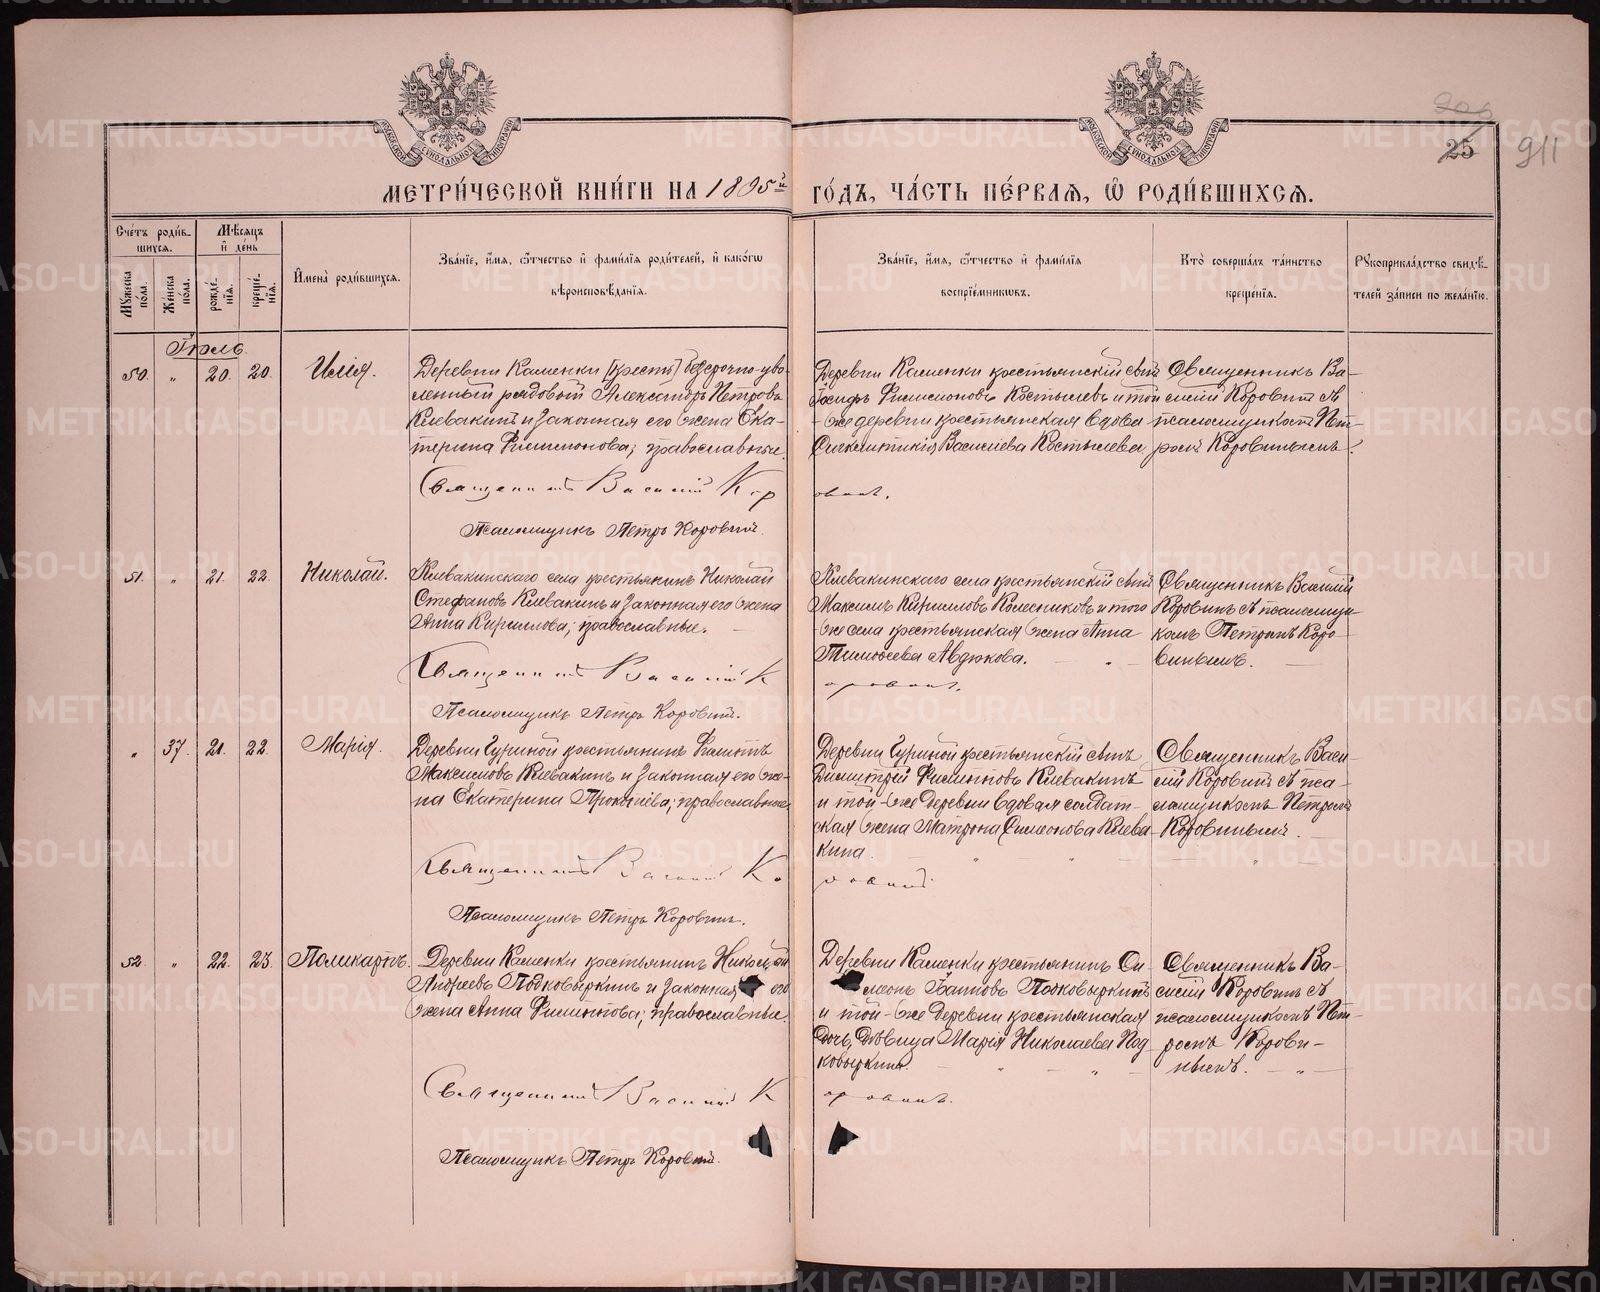 МОСКОВСКОЙ СѴНОДАЛЬНОЙ ТИПОГРАФІИ
МОСКОВСКОЙ СѴНОДАЛЬНОЙ ТИПОГРАФІИ
25
911
МЕТРИ́ЧЕСКОЙ КНИ́ГИ НА 1895й ГО́ДЪ, ЧА́СТЬ ПЕ́РВАЯ, Ѡ РОДИ́ВШИХСЯ.
Сче́тъ роди́в-
шихся.
Мѣ́сяцъ
и де́нь
Му́жеска
по́ла.
Же́нска
по́ла.
рожде́-
нїя.
креще́-
нїя.
Имена̀ роди́вшихся.
Зва́нїе, и́мя, ѻ́тчество и фами́лїя роди́телей, и како́гѡ
вѣроисповѣ́данїя.
Зва́нїе, и́мя, ѻ́тчество и фами́лїя
воспрїе́мникѡвъ.
Кто̀ соверша́лъ та́инство
креще́нїя.
Рукоприкла́дство свидѣ́-
телей за́писи по жела́нїю.
Іюль.
50. " 20. 20. Илія.
Деревни Каменки [крестъ] безсрочно-уво-
ленный рядовой Александръ Петровъ
Клевакинъ и законная его жена Ека-
терина Филимонова; православные.
Деревни Каменки крестьянскій сынъ
Іосифъ Филимоновъ Костылевъ и той
же деревни крестьянская вдова
Васильева Костылева
Священникъ Ва-
силій Коровинъ съ
псаломщикомъ Пет-
ромъ Коровинымъ.
Священникъ Василій Коровинъ.
Псаломщикъ Петръ Коровинъ.
51. " 21. 22. Николай.
Клевакинскаго села крестьянинъ Николай
Стефановъ Клевакинъ и законная его жена
Анна Кириллова; православные.
Клевакинскаго села крестьянскій сынъ
Максимъ Кирилловъ Колесниковъ и того
же села крестьянская жена Анна
Тимоѳеева Авдюкова.
Священникъ Василій
Коровинъ съ псаломщи-
комъ Петромъ Коро-
винымъ.
Священникъ Василій Коровинъ.
Псаломщикъ Петръ Коровинъ.
" 37. 21. 22. Марія.
Деревни Чуриной крестьянинъ Филиппъ
Максимовъ Клевакинъ и законная его же-
на Екатерина Прокопіева; православные
Деревни Чуриной крестьянскій сынъ
Димитрій Филипповъ Клевакинъ
и той же деревни вдовая солдат-
ская жена Матрона Симеонова Клева-
кина.
Священникъ Васи-
лій Коровинъ съ пса-
ломщикомъ Петромъ
Коровинымъ.
Священникъ Василій Коровинъ.
Псаломщикъ Петръ Коровинъ.
52. " 22. 23. Поликарпъ.
Деревни Каменки крестьянинъ Николай
Андреевъ Подковыркинъ и законная его
жена Анна Филиппова; православные.
Деревни Каменки крестьянинъ Си-
меонъ Подковыркинъ
и той же деревни крестьянская
дочь, дѣвица Марія Николаева Под-
ковыркина.
Священникъ Ва-
силій Коровинъ съ
псаломщикомъ Пет-
ромъ Корови-
нымъ.
Священникъ Василій Коровинъ.
Псаломщикъ Петръ Коровинъ.
METRIKI.GASO-URAL.RU